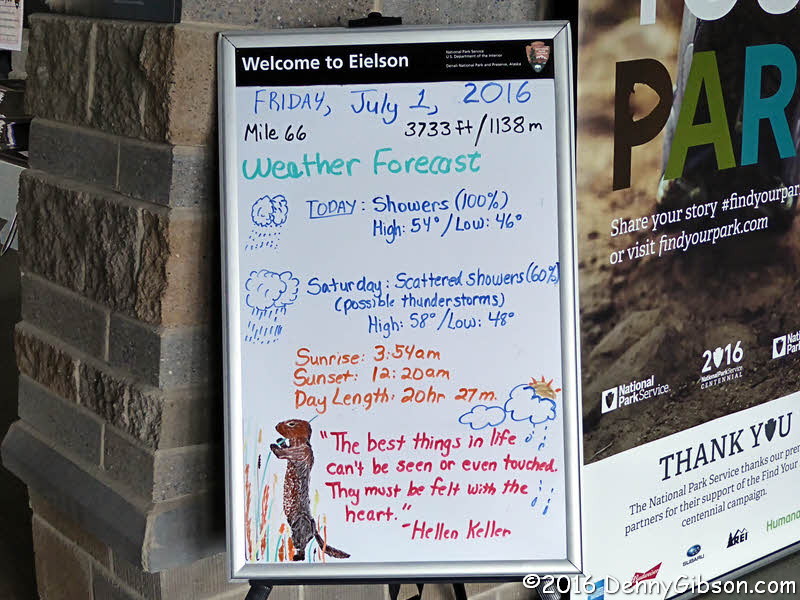 Welcome to Eielson
National Park Service
U.S. Department of the Interior
Denali National Park and Preserve, Alaska
FRIDAY, July 1, 2016
Mile 66
3733 ft/1138 m
Weather Forecast
TODAY: Showers (100%)
High: 54°/Low: 46°
Saturday: Scattered showers (60%)
(possible thunderstorms)
High: 58°/Low: 48°
Sunrise: 3:54am
Sunset: 12:20am
Day Length: 20hr 27m.
"The best things in life
can't be seen or even touched.
They must be felt with the
heart."
-Hellen Keller
PAR
Share your story #findyourpar
or visit findyourpark.com
National
Park Service
2016
National Park Service
CENTENNIAL
Nat
Par
THANK YOU
The National Park Service thanks our pre
partners for their support of the Find Your
centennial campaign.
Budweiser
SUBARU
REI
Humana
©2016 DennyGibson.com